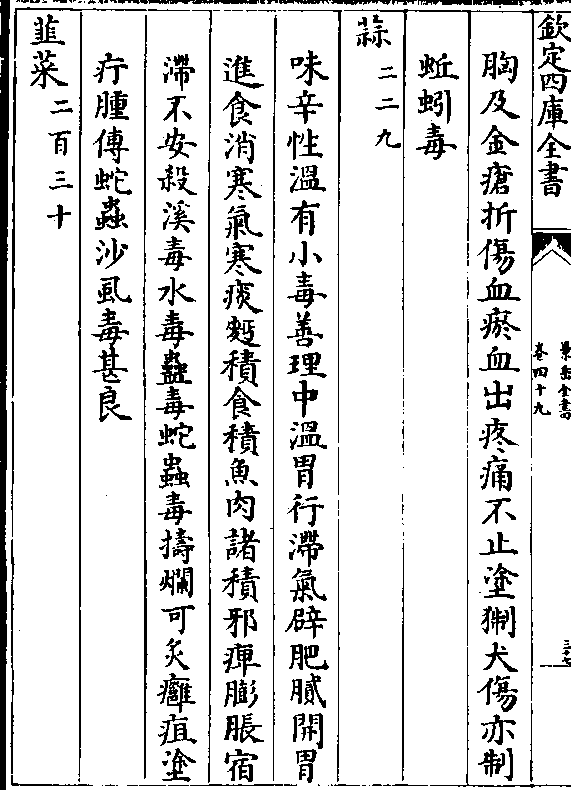 欽定四庫全書
景岳全書
卷四十九
胸及金瘡折傷血瘀血出疼痛不止塗猘犬傷亦制
蚯蚓毒
蒜二二九
味辛性溫有小毒善理中溫胃行滯氣辟肥膩開胃
進食消寒氣寒痰麫積食積魚肉諸積邪痺膨脹宿
滯不安殺溪毒水毒蠱毒蛇蟲毒擣爛可炙癰疽塗
疔腫傅蛇蟲沙虱毒甚良
韭菜二百三十